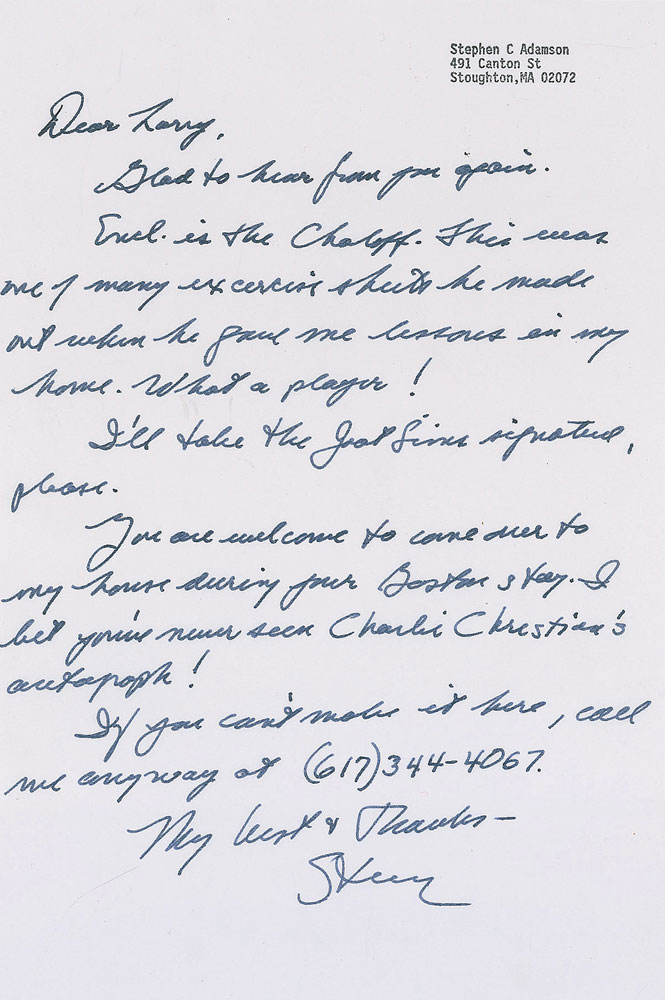 Stephen C Adamson
491 Canton St
Stoughton, MA 02072
Dear Larry,
Glad to hear from you again.
Encl. is the Chaloff. This was
one of many excercise sheets he made
out when he gave me lessons in my
home. What a player!
I'll take the Zoot Sims signature,
please.
You are welcome to come over to
my house during your Boston stay. I
bet you've never seen Charlie Christian's
autograph!
If you can't make it here, call
me anyway at (617)344-4067.
My best & Thanks-
Steve